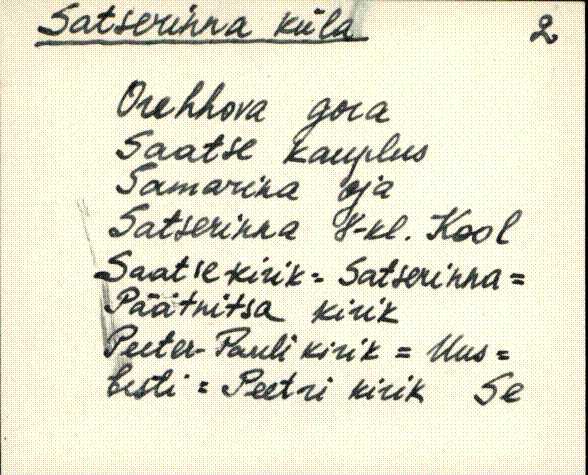 Satserinna küla 2
Orehhova gora
Saatse kauplus
Samarina oja
Satserinna 8-kl. Kool
Saatse kirik = Satserinna =
Päätnitsa kirik
Peeter-Pauli kirik = Uus =
besti = Peetri kirik Se